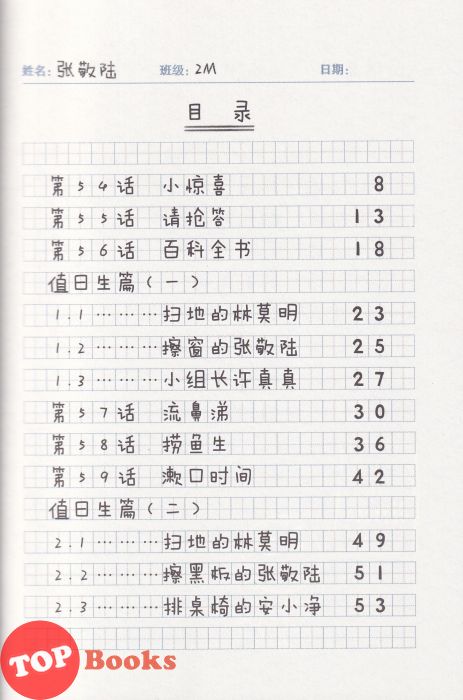 姓名: 张敬陆 班级: 2M 日期:
目 录
第54话 小惊喜 8
第55话 请抢答 13
第56话 百科全书 18
值日生篇(一)
1.1………扫地的林莫明 23
1.2………擦窗的张敬陆 25
1.3………小组长许真真 27
第57话 流鼻涕 30
第58话 捞鱼生 36
第59话 漱口时间 42
值日生篇(二)
2.1………扫地的林莫明 49
2.2………擦黑板的张敬陆 51
2.3………排桌椅的安小净 53
TOP Books